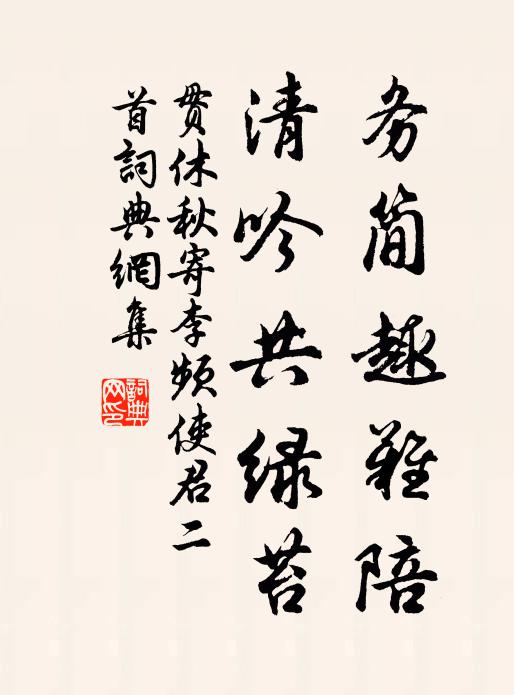 务简趣难陪
清吟共绿苔
贯休秋寄李频使君二
首词典網集
詞典网印